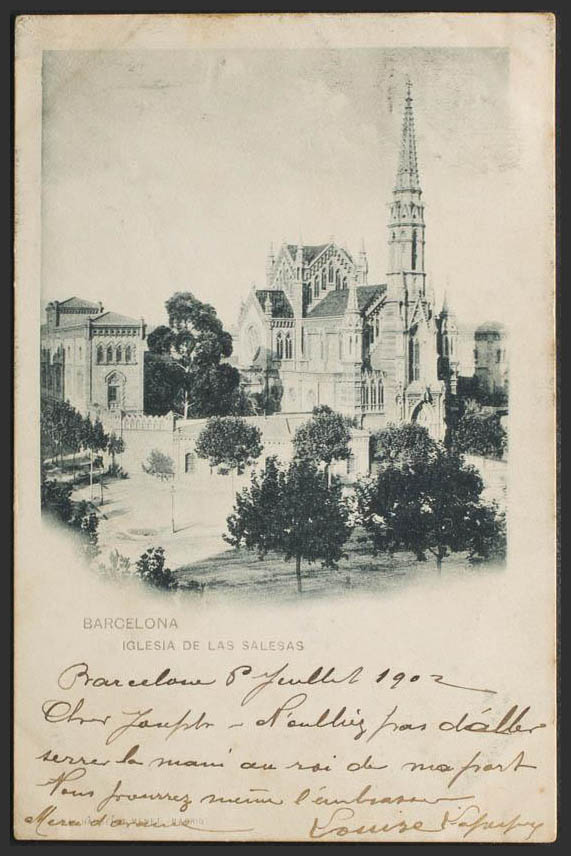 BARCELONA
IGLESIA DE LAS SALESAS
Barcelone 8 Juillet 1902
Cher Joseph – N'oubliez pas d'aller
serrer la main au roi de ma part
Vous pourrez même l'embrasser
Merci d'avance Louise
MADRID